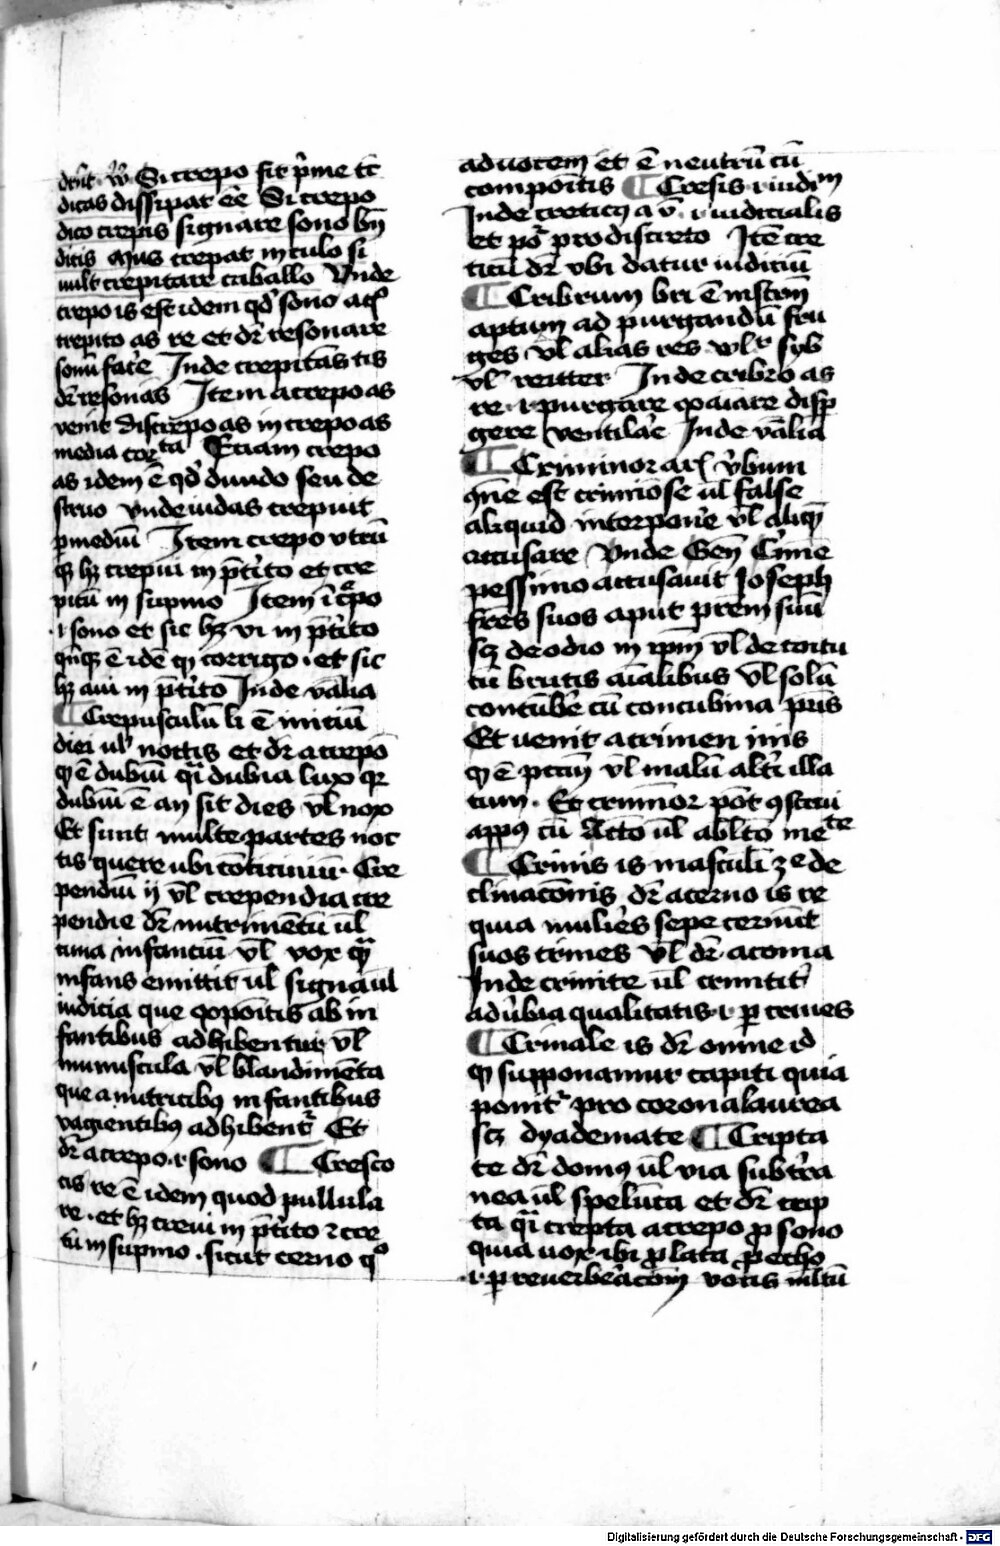 dr̄nt vꝰ Si crepo sit p̄me tc̄
dicas dissipat ēe Si crepo
dico crepis signare sono bn̄
dicis Mus crepat in culo si
vult crepitare caballo Vnde
crepo is est idem qd̓ sono ac
crepito as re et dr̄ resonare
sonū fac̓e Inde crepitās tis
dr̄ resonās Item accrepo as
venit discrepo as increpo as
media corta Etiam crepo
as idem ē qd̓ dundo seu de
struo vnde iudas crepuit
ꝑ mediū Item crepo vtrū
qꝫ hꝫ crepui in p̄t̓ito et cre
pitū in supino Item īcͣpo
.i. sono et sic hꝫ vi in p̄t̓ito
qn̄qꝫ ē idē qꝫ corrigo . et sic
hꝫ aui in p̄t̓ito Inde vālia
¶ Crepusculū li ē initiū
diei ul̓ noctis et dr̄ a crepo
qꝫ ē dubiū qi̓ dubia lux qꝛ
dubiū ē an sit dies vl̄ nox
Et sunt multe partes noc
tis quere ubi cōticiniū . Cre
pendiū ij vl̄ crependia cre
pendie dr̄ nutrimētū ul̄
cuna infanciū vl̄ vox quā
infans emittit ul̄ signa ul̄
indicia que ꝯpōitis ab in
fantibus adhibentur vl̄
munuscula vl̄ blandimēta
que a nutricibꝰ infantibus
vagientibꝰ adhibent̄ Et
dr̄ a crepo .i. sono ¶ Cresco
cis re ē idem quod pullula
re . et hꝫ creui in p̄t̓ito ⁊ cre
tū in supino . sicut cerno qͦ
ad uocem et ē neutrū cū
compōitis ¶ Cresis .i. iudiͫ
Inde creticꝰ a ū .i. iudicialis
et pōt̄ pro discreto Itē cre
ticū dr̄ vbi datur iudiciū
¶ Cribrum bri ē instrm̄
aptum ad purgandū fru
ges vl̄ alias res wl̓r syb
vl̓ reitter Inde cribro as
re .i. purgare ꝯquāiare disp̄
gere ventilac̓e Inde vālia
¶ Criminor ari v̄bum
qn̄e est crimīose ul̄ false
aliquid interpon̓e vl̄ aliqꝫ
accusare Vnde Gen̄ C̓ime
pessimo accusauit Ioseph
fr̄es suos aput pr̄em suū
scꝫ de odio in ip̄m vl̄ de coitu
cū brutis aīalibus vl̄ solū
concūb̓e cū concubina pr̄is
Et uenit a crimen inis
qꝫ ē pccm̄ vl̄ malū alt̓i illa
tum . Et criminor pōt ꝯstrui
app̄ꝰ cū Actō ul̄ ablt̄o mete
¶ Crinis is masculī gͤ de
clinacōnis dr̄ a cerno is re
quia mulie̓s sepe cernūt
suos crines vl̄ dr̄ a coma
Inde crinite ul̄ crinitit̄
ad u̓bia qualitatis .i. ꝑ crines
¶ Crinale is dr̄ omne id
qꝫ supponamur capiti quia
ponit̄ pro corona laurea
scꝫ dyademate ¶ Cripta
te dr̄ domꝰ ul̄ via subt̓ra
nea ul̄ spelūca et dr̄ crip
ta qi̓ crepta a crepo ꝓ sono
quia uox ibi ꝓlata ꝓ echo
.i. ꝑ reuerbe̓acōem vocis mltū
Digitalisierung gefördert durch die Deutsche Forschungsgemeinschaft - DFG